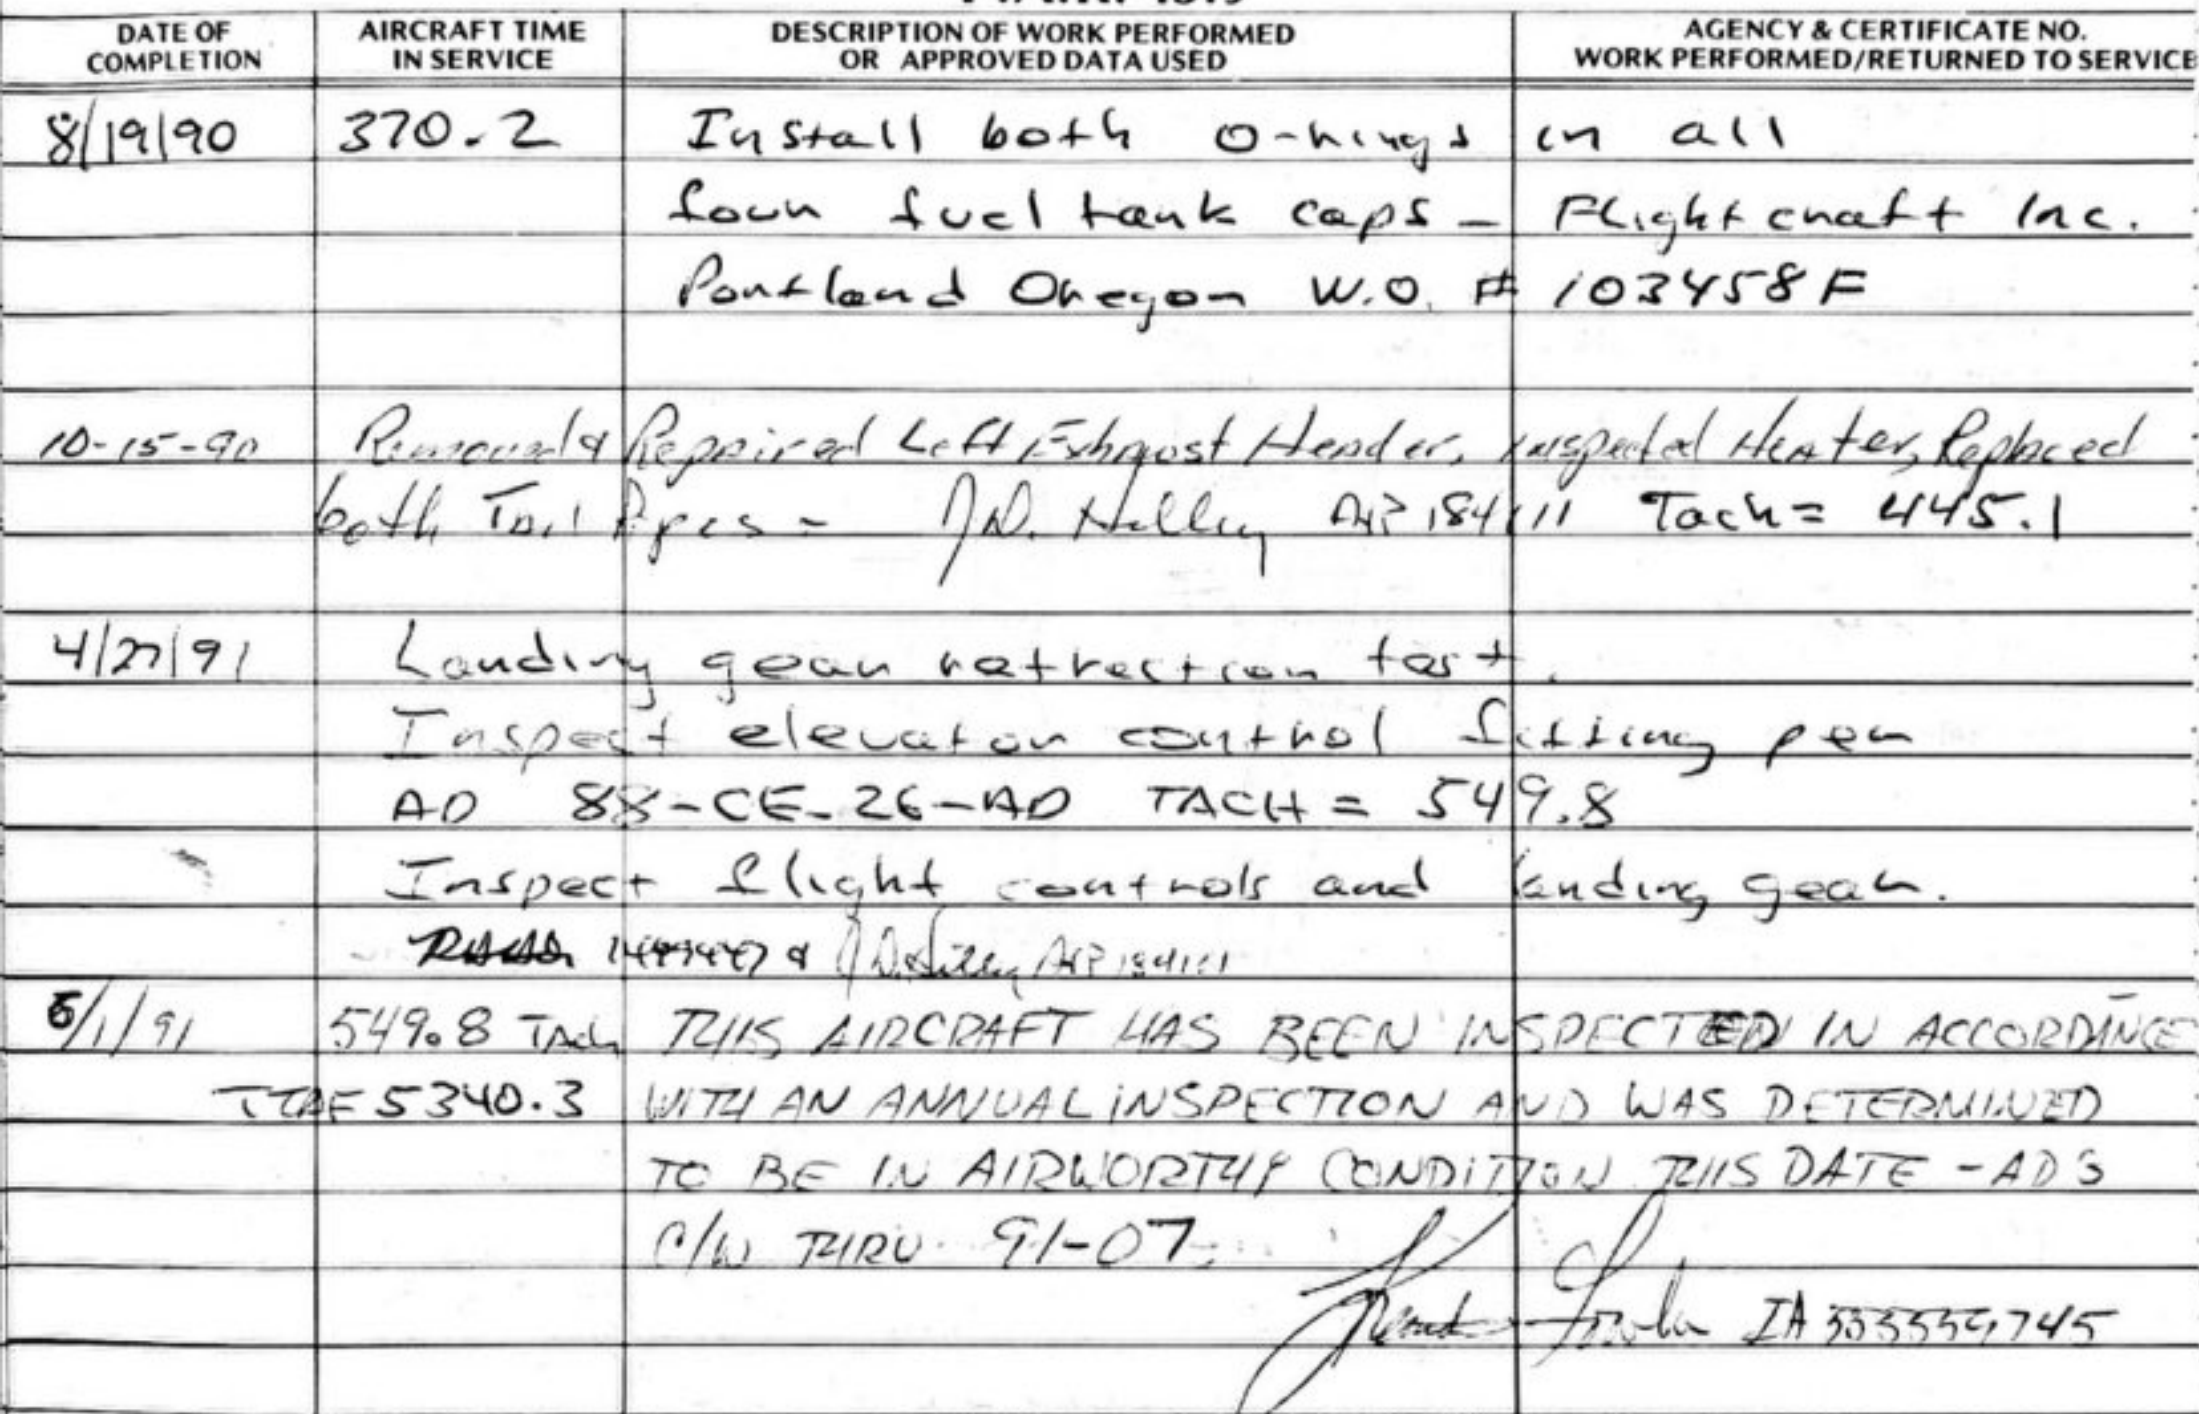 DATE OF COMPLETION AIRCRAFT TIME IN SERVICE DESCRIPTION OF WORK PERFORMED OR APPROVED DATA USED AGENCY & CERTIFICATE NO. WORK PERFORMED/RETURNED TO SERVICE
8/19/90 370.2 Install both O-rings in all
four fuel tank caps - Flightcraft Inc.
Portland Oregon W.O. # 103458F
10-15-90 Removed & Repaired Left Exhaust Header, inspected Heater, Replaced
both Tail Pipes - A&P 184111 Tach = 445.1
4/27/91 Landing gear retraction test.
Inspect elevator control fitting per
AD 88-CE-26-AD TACH = 549.8
Inspect flight controls and landing gear.
& A&P 184111
5/1/91 549.8 Tach THIS AIRCRAFT HAS BEEN INSPECTED IN ACCORDANCE
TTAF 5340.3 WITH AN ANNUAL INSPECTION AND WAS DETERMINED
TO BE IN AIRWORTHY CONDITION THIS DATE - AD'S
C/W THRU 91-07.
IA